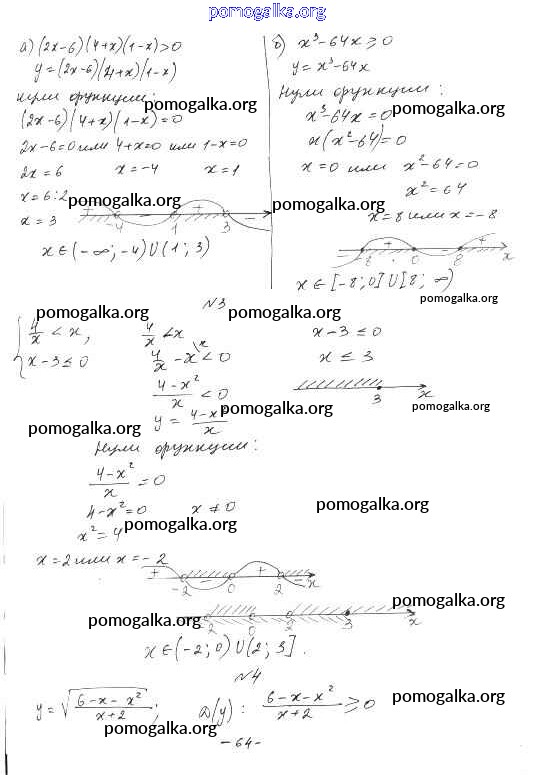 pomogalka.org
а) (2x-6)(4+x)(1-x)>0
y=(2x-6)(4+x)(1-x)
Нули функции:
pomogalka.org
(2x-6)(4+x)(1-x)=0
2x-6=0 или 4+x=0 или 1-x=0
2x=6 x=-4 x=1
x=6:2
pomogalka.org
x=3
+ - + -
-4 1 3
x∈(-∞;-4)∪(1;3)
б) x³-64x≥0
y=x³-64x
Нули функции:
pomogalka.org
x³-64x=0
x(x²-64)=0
x=0 или x²-64=0
x²=64
pomogalka.org
x=8 или x=-8
- + - +
-8 0 8 x
x∈[-8;0]∪[8;∞)
pomogalka.org
N3
pomogalka.org
4/x < x,
x-3≤0
4/x < x
4/x - x < 0
(4-x²)/x < 0
y = (4-x²)/x
pomogalka.org
x-3≤0
x≤3
3 x
pomogalka.org
pomogalka.org
Нули функции:
(4-x²)/x = 0
4-x²=0 x≠0
pomogalka.org
x²=4
pomogalka.org
x=2 или x=-2
+ - + -
-2 0 2 x
pomogalka.org
-2 0 2 3 x
pomogalka.org
x∈(-2;0)∪(2;3].
N4
y=√((6-x-x²)/(x+2)); D(y): (6-x-x²)/(x+2) ≥0
pomogalka.org
pomogalka.org
-64-